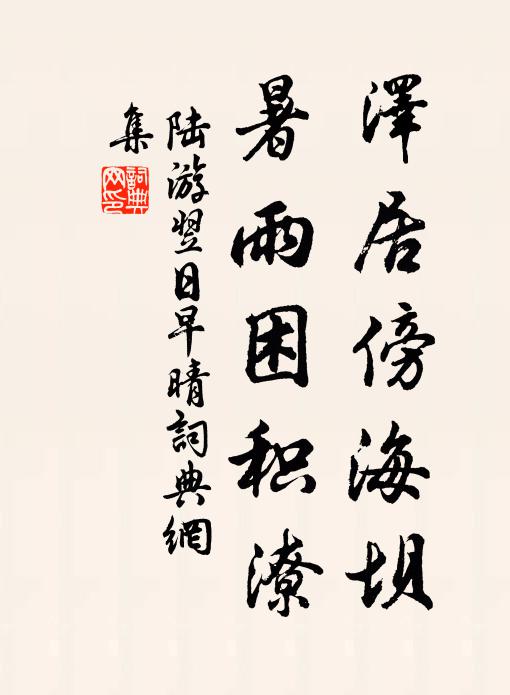 澤居傍海坝
暑雨困积潦
陆游翌日早晴詞典網
集
詞典网印